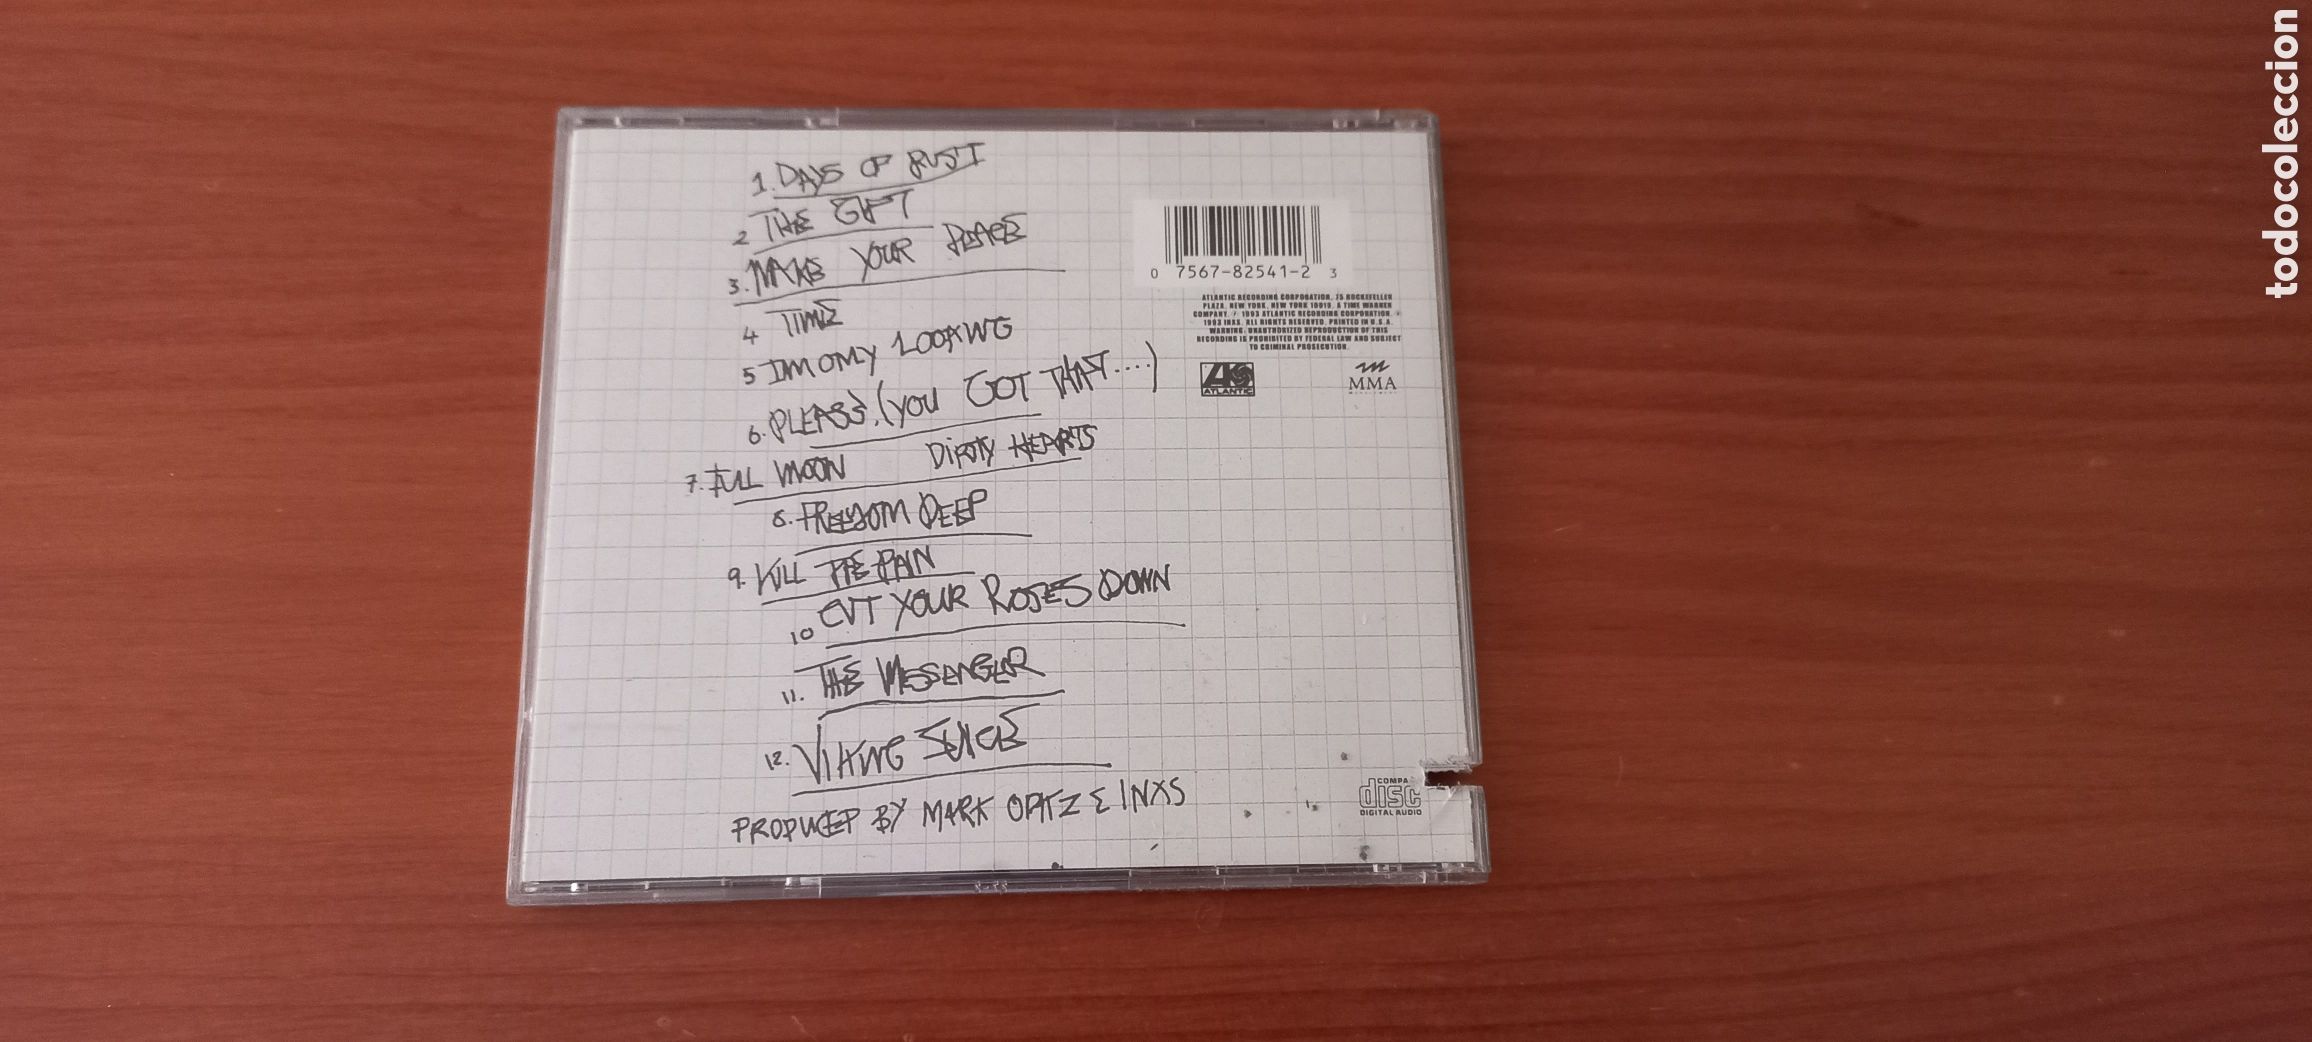 1. DAYS OF RUST
2 THE GIFT
3. MAKE YOUR PEACE
4 TIME
5 I'M ONLY LOOKING
6. PLEASE, (YOU GOT THAT....)
7. FULL MOON DIRTY HEARTS
8. FREEDOM DEEP
9. KILL THE PAIN
10 CUT YOUR ROSES DOWN
11. THE MESSENGER
12. VIKING JUICE
PRODUCED BY MARK OPITZ & INXS
0 7567-82541-2 3
ATLANTIC RECORDING CORPORATION, 75 ROCKEFELLER
PLAZA, NEW YORK, NEW YORK 10019. A TIME WARNER
COMPANY. ℗ 1993 ATLANTIC RECORDING CORPORATION. ©
1993 INXS. ALL RIGHTS RESERVED. PRINTED IN U.S.A.
WARNING: UNAUTHORIZED REPRODUCTION OF THIS
RECORDING IS PROHIBITED BY FEDERAL LAW AND SUBJECT
TO CRIMINAL PROSECUTION.
ATLANTIC
MMA
COMPA
disc
DIGITAL AUDIO
todocoleccion